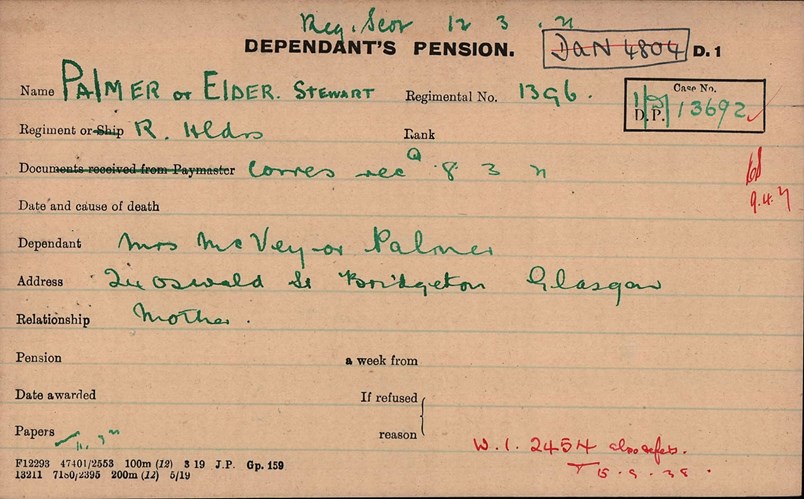 Reg. Scot 12 3 . 21
DEPENDANT'S PENSION. DaN 4804 D. 1
Name PALMER or ELDER. STEWART Regimental No. 1396.
Case No.
D.P. 13692
Regiment or Ship R. Hldrs Rank
Documents received from Paymaster Corres recd 8 3 21
9.4.21
Date and cause of death
Dependant Mrs McVey or Palmer
Address 24 Oswald St Bridgeton Glasgow
Relationship Mother.
Pension a week from
Date awarded If refused
Papers reason
W.1. 2454 also refs.
15.9.38.
F12293 47401/2553 100m (12) 3 19 J.P. Gp. 159
13211 7180/2395 200m (12) 5/19